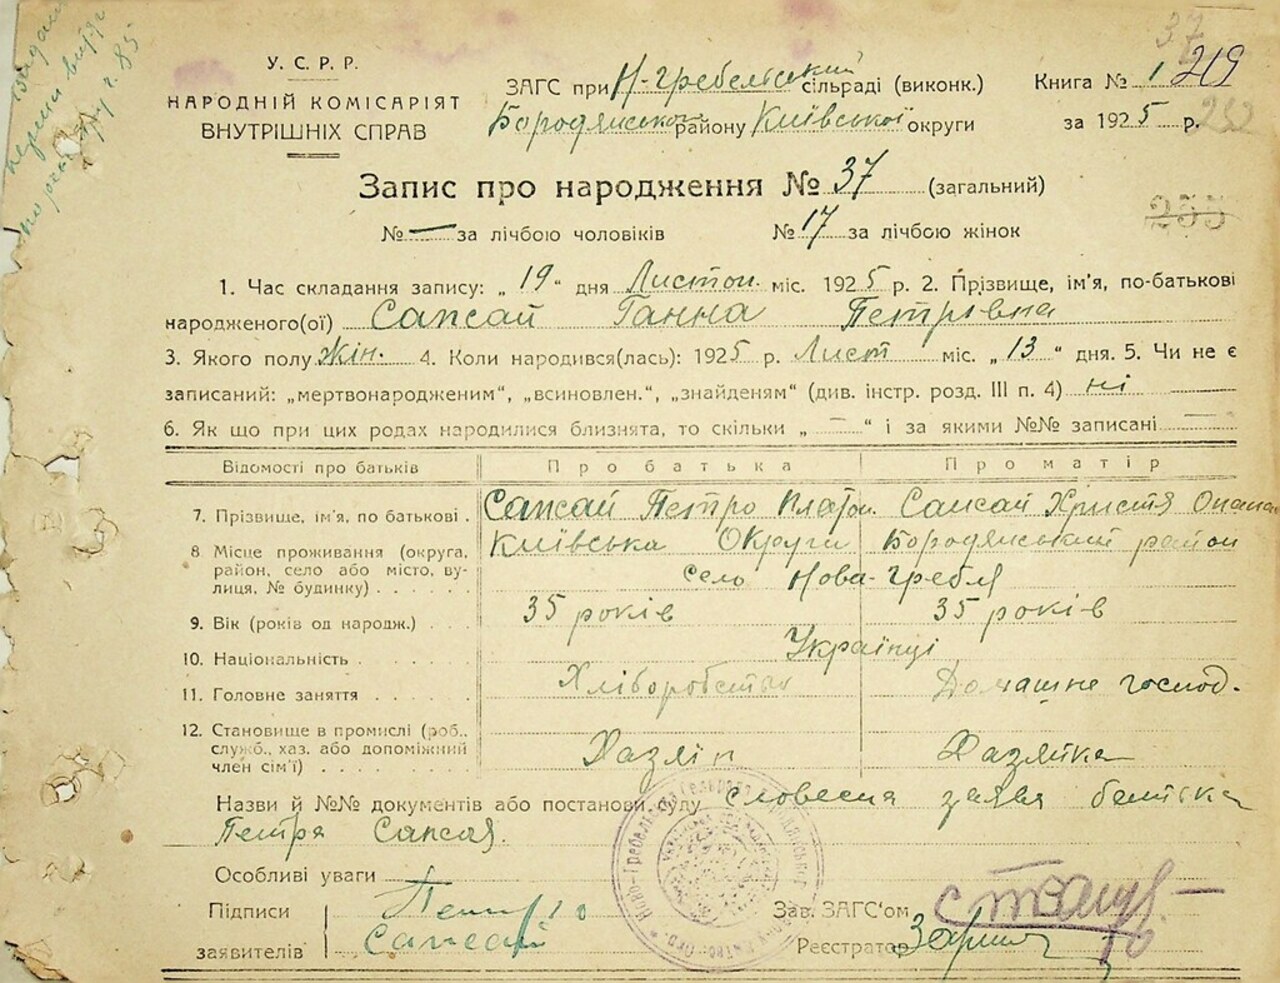 37
У. С. Р. Р.
НАРОДНІЙ КОМІСАРІЯТ
ВНУТРІШНІХ СПРАВ
ЗАГС при Н-гребельський сільраді (виконк.)
Бородянського району Київської округи
Книга № 1 219
за 1925 р. 252
Запис про народження № 37 (загальний)
255
№ — за лічбою чоловіків № 17 за лічбою жінок
1. Час складання запису: „ 19 “ дня Листоп. міс. 1925 р. 2. Прізвище, ім'я, по-батькові
народженого(ої) Сапсай Ганна Петрівна
3. Якого полу жін. 4. Коли народився(лась): 1925 р. Лист міс. „ 13 “ дня. 5. Чи не є
записаний: „мертвонародженим“, „всиновлен.“, „знайденям“ (див. інстр. розд. III п. 4) ні
6. Як що при цих родах народилися близнята, то скільки „ — “ і за якими №№ записані —
Відомості про батьків Про батька Про матір
7. Прізвище, ім'я, по батькові . Сапсай Петро Платон. Сапсай Христя
8 Місце проживання (округа, район, село або місто, вулиця, № будинку) . . . . . . Київська Округи Бородянський район
село Нова-Гребля
9. Вік (років од народж.) . . . 35 років 35 років
10. Національність . . . . . . Українці
11. Головне заняття . . . . . . Хліборобство Домашнє господ.
12. Становище в промислі (роб., служб., хаз. або допоміжний член сім'ї) . . . . . . . . Хазяїн Хазяйка
Назви й №№ документів або постанови суду словесна заява батька
Петра Сапсая.
Особливі уваги
Підписи заявителів Петро Сапсай
Зав. ЗАГС'ом
Реєстратор